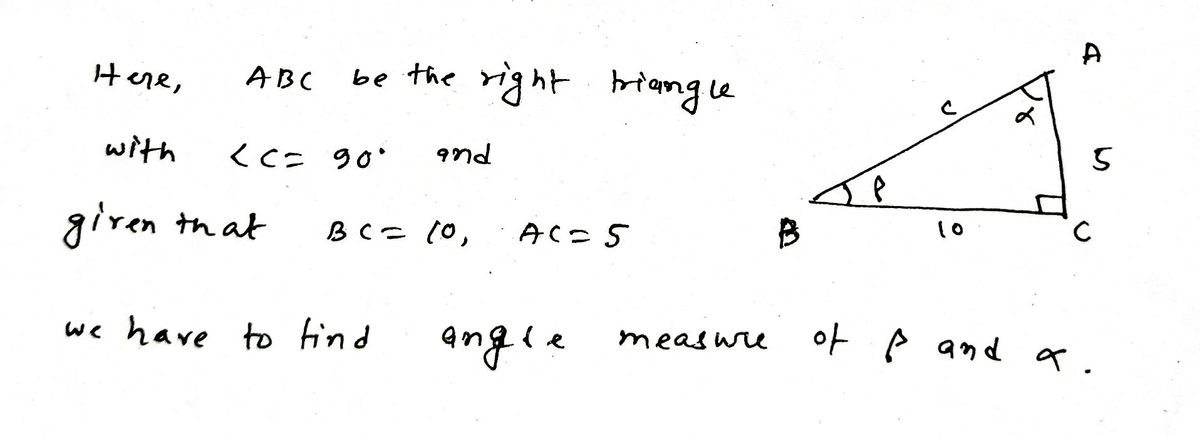 Here, ABC be the right triangle
with <C = 90° and
given that BC = 10, AC = 5
we have to find angle measure of β and α.
A
c
α
5
β
B
10
C